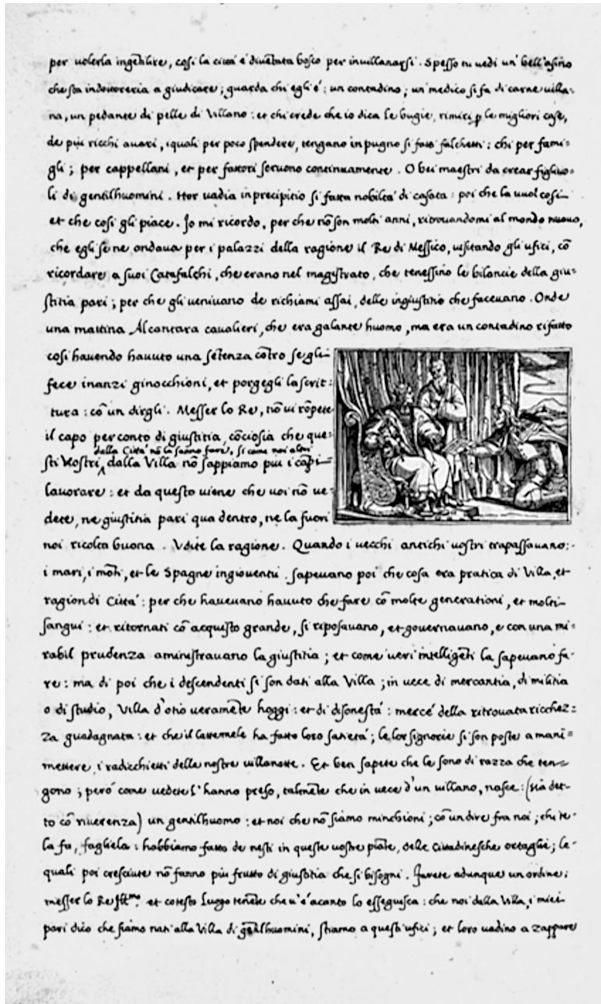 per volerla ingentilire, così la città è diventata bosco per invillanarsi. Spesso tu vedi un' bell'asino
che sta in dottoreria a giudicare; guarda chi egli è: un contadino; un' medico si fa di carne villa=
na, un pedante di pelle di Villano: et chi crede che io dica le bugie, rimiri p le migliori case,
de piu ricchi avari, i quali per poco spendere, tengano in pugno si fatti falchetti: chi per fami=
gli; per cappellani, et per fattori servono continuamente. O bei maestri da crear figliuo=
li di gentilhuomini. Hor vadia in precipitio si fatta nobiltà di casata: poi che la vuol così
et che così gli piace. Io mi ricordo, per che nō son molti anni, ritrovandomi al mondo nuovo,
che egli se ne andava per i palazzi della ragione il Re di Messico, visitando gli ufici, cō
ricordare a suoi Catafalchi, che erano nel magistrato, che tenessino le bilancie della giu=
stitia pari; per che gli venivano de richiami assai, delle ingiustitie che facevano. Onde
una mattina Alcantara cavalieri, che era galante huomo, ma era un contadino rifatto
così havendo havuto una sētenza cōtro se gli
fece inanzi ginocchioni, et porgegli la scrit=
tura: cō un dirgli. Messer lo Re, nō vi rōpete
il capo per conto di giustitia, cōciosia che que=
della Città nō la sanno fare, si come noi altri
sti Vostri, dalla Villa nō sappiamo piu i cāpi
lavorare: et da questo viene che voi nō ve=
dete, ne giustitia pari qua dentro, ne la fuori
noi ricolta buona. Vdite la ragione. Quando i vecchi antichi vostri trapassavano:
i mari, i mōti, et le Spagne in gioventù. sapevano poi che cosa era pratica di Villa, et
ragion di Città: per che havevano havuto che fare cō molte generationi, et molti
sangui: et ritornati cō acquisto grande, si riposavano, et governavano, e con una mi=
rabil prudenza aministravano la giustitia; et come veri intelligēti la sapevano fa=
re: ma di poi che i descendenti si son dati alla Villa; in vece di mercantia, di militia
o di studio, Villa d'otio veramēte hoggi: et di disonestà: mercé della ritrovata ricchez=
za guadagnata: et che il lattemele ha fatto loro satietà; le lor signorie si son poste a mani=
mettere, i radicchietti delle nostre villanotte. Et ben sapete che le sono di razza che ten=
gono; però come vedete l'hanno preso, talmēte che in vece d'un villano, nasce: (sia det=
to cō riverenza) un gentilhuomo: et noi che nō siamo minchioni; cō un dire fra noi; chi te=
la fa, fagliela: hobbiamo fatto de nesti in queste vostre piāte, delle Cittadinesche ortaglie; le=
quali poi cresciute nō fanno piu frutto di giustitia che si bisogni. Farete adunque un ordine;
messer lo Re et cotesto Luogo tenēte che v'è acanto lo esseguisca: che noi della Villa, i miei
pari dico che siamo nati alla Villa di gētilhuomini, stiamo a questi ufici; et loro vadino a zappare